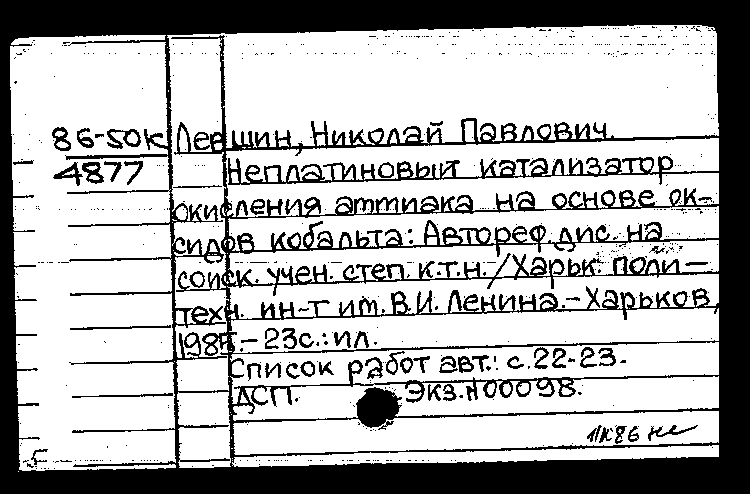 86-50к Левшин, Николай Павлович.
4877 Неплатиновый катализатор
окисления аммиака на основе ок-
сидов кобальта: Автореф. дис. на
соиск. учен. степ. к.т.н. / Харьк. поли-
техн. ин-т им. В.И. Ленина. - Харьков,
198 .- 23с.: ил.
Список работ авт.: с. 22-23.
ДСП. Экз. N 00098.
5